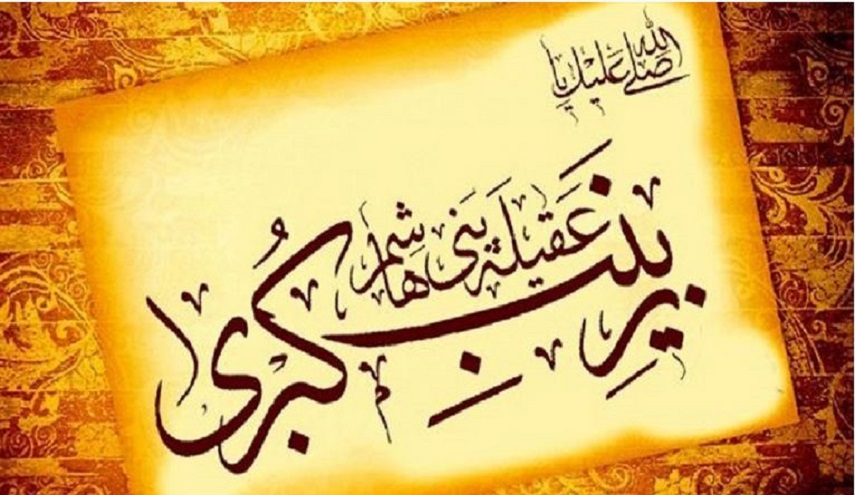 صلی الله علیک یا
عَقیلَة بَنی هاشِم
زینبِ کُبری